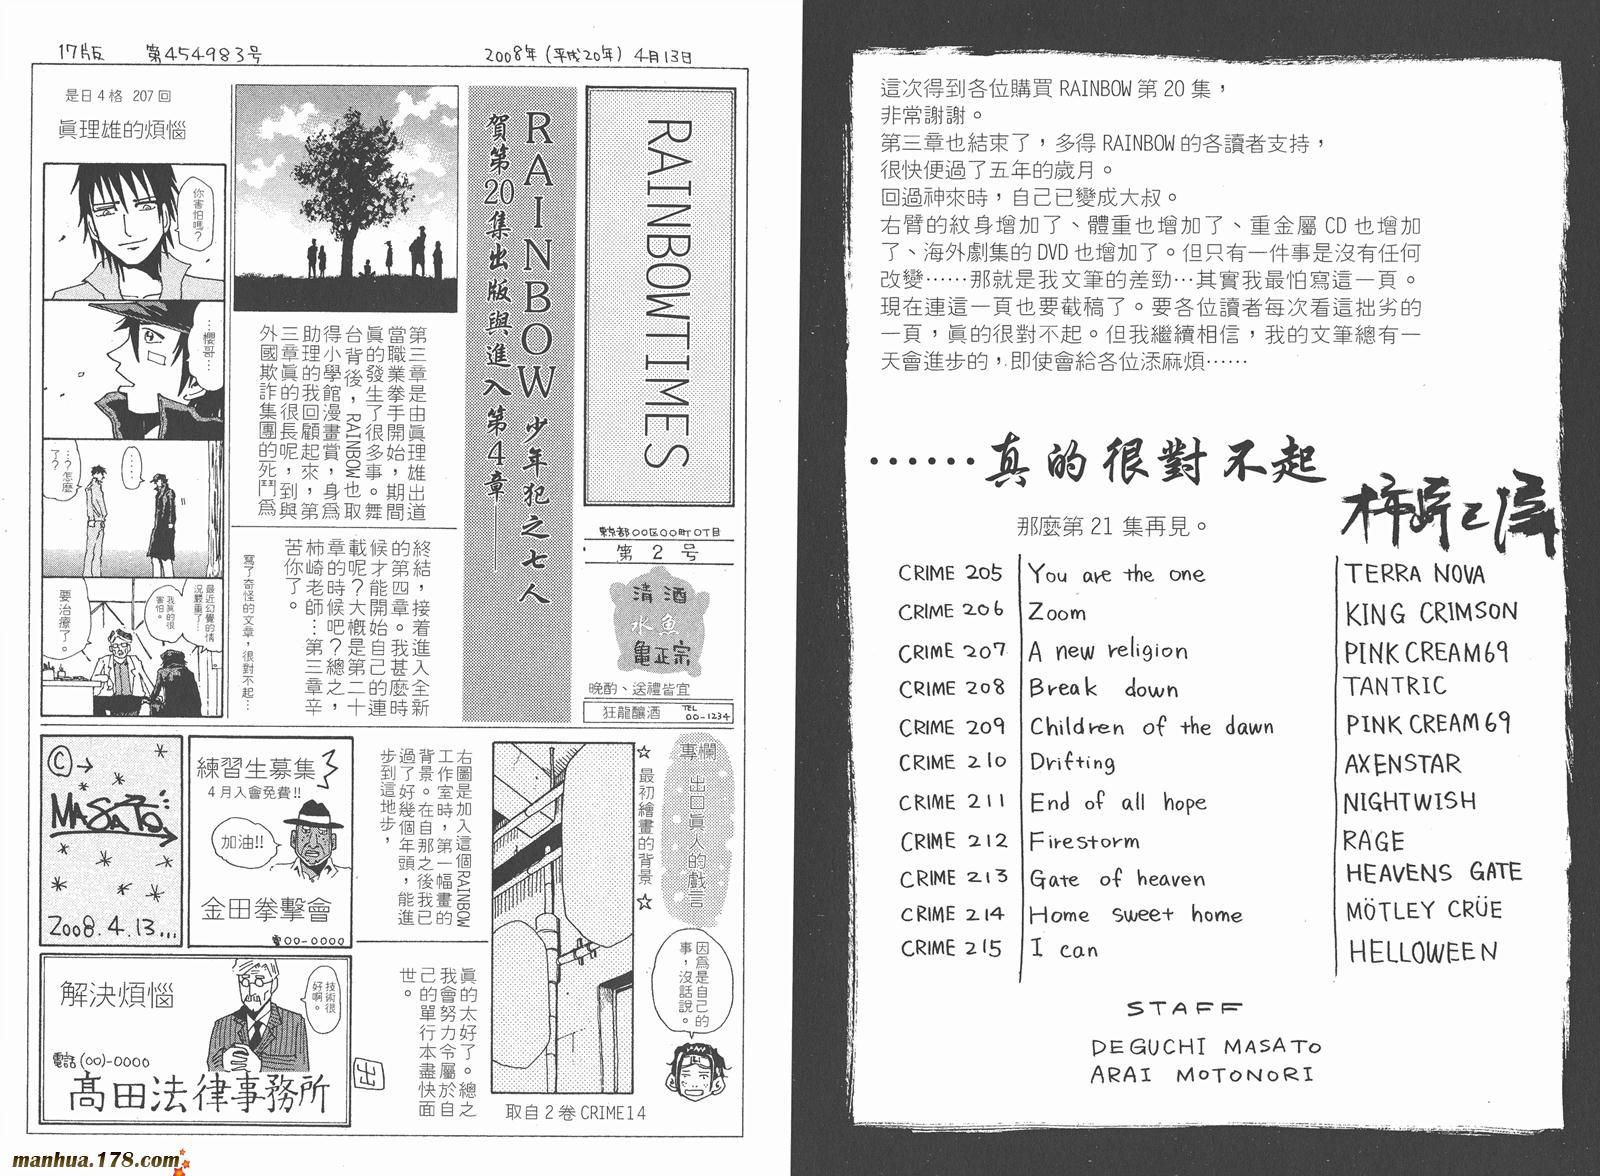 17版 第454983号
2008年(平成20年) 4月13日
RAINBOWTIMES
東京都〇〇区〇〇町〇丁目
第2号
清酒
水魚
亀正宗
晩酌、送禮皆宜
狂龍釀酒 TEL 00-1234
RAINBOW少年犯之七人
賀第20集出版與進入第4章——
第三章是由眞理雄出道
當職業拳手開始,期間
眞的發生了很多事。舞
台背後,RAINBOW也取
得小學館漫畫賞,身為
助理的我回顧起來,第
三章眞的很長呢,到與
外國欺詐集團的死鬥為
終結,接着進入全新
的第四章。我甚麼時
候才能開始自己的連
載呢?大概是第二十
章的時候吧?總之,
柿崎老師…第三章辛
苦你了。
寫了奇怪的文章,很對不起…
是日4格 207回
眞理雄的煩惱
你害怕嗎?
…櫻哥…
……
…?怎麼
了?
最近幻覺的情
況嚴重了…
我眞的很
害怕。
要治療了。
專欄 出口眞人的戲言
☆最初繪畫的背景☆
因為是自己的
事,沒話說。
取自2卷CRIME14
右圖是加入這個RAINBOW
工作室時,第一幅畫的
背景。在自那之後我已
過了好幾個年頭,能進
步到這地步,
眞的太好了。總之
我會努力令屬於自
己的單行本盡快面
世。
出
©→
MASATO
2008.4.13...
練習生募集
4月入會免費!!
加油!!
金田拳擊會
☎00-0000
解決煩惱
技術很
好啊。
電話(00)-0000
高田法律事務所
manhua.178.com
這次得到各位購買RAINBOW第20集,
非常謝謝。
第三章也結束了,多得RAINBOW的各讀者支持,
很快便過了五年的歲月。
回過神來時,自己已變成大叔。
右臂的紋身增加了、體重也增加了、重金屬CD也增加
了、海外劇集的DVD也增加了。但只有一件事是沒有任何
改變……那就是我文筆的差勁…其實我最怕寫這一頁。
現在連這一頁也要截稿了。要各位讀者每次看這拙劣的
一頁,眞的很對不起。但我繼續相信,我的文筆總有一
天會進步的,即使會給各位添麻煩……
……真的很對不起
那麼第21集再見。
CRIME 205 You are the one TERRA NOVA
CRIME 206 Zoom KING CRIMSON
CRIME 207 A new religion PINK CREAM69
CRIME 208 Break down TANTRIC
CRIME 209 Children of the dawn PINK CREAM69
CRIME 210 Drifting AXENSTAR
CRIME 211 End of all hope NIGHTWISH
CRIME 212 Firestorm RAGE
CRIME 213 Gate of heaven HEAVENS GATE
CRIME 214 Home sweet home MÖTLEY CRÜE
CRIME 215 I can HELLOWEEN
STAFF
DEGUCHI MASATO
ARAI MOTONORI